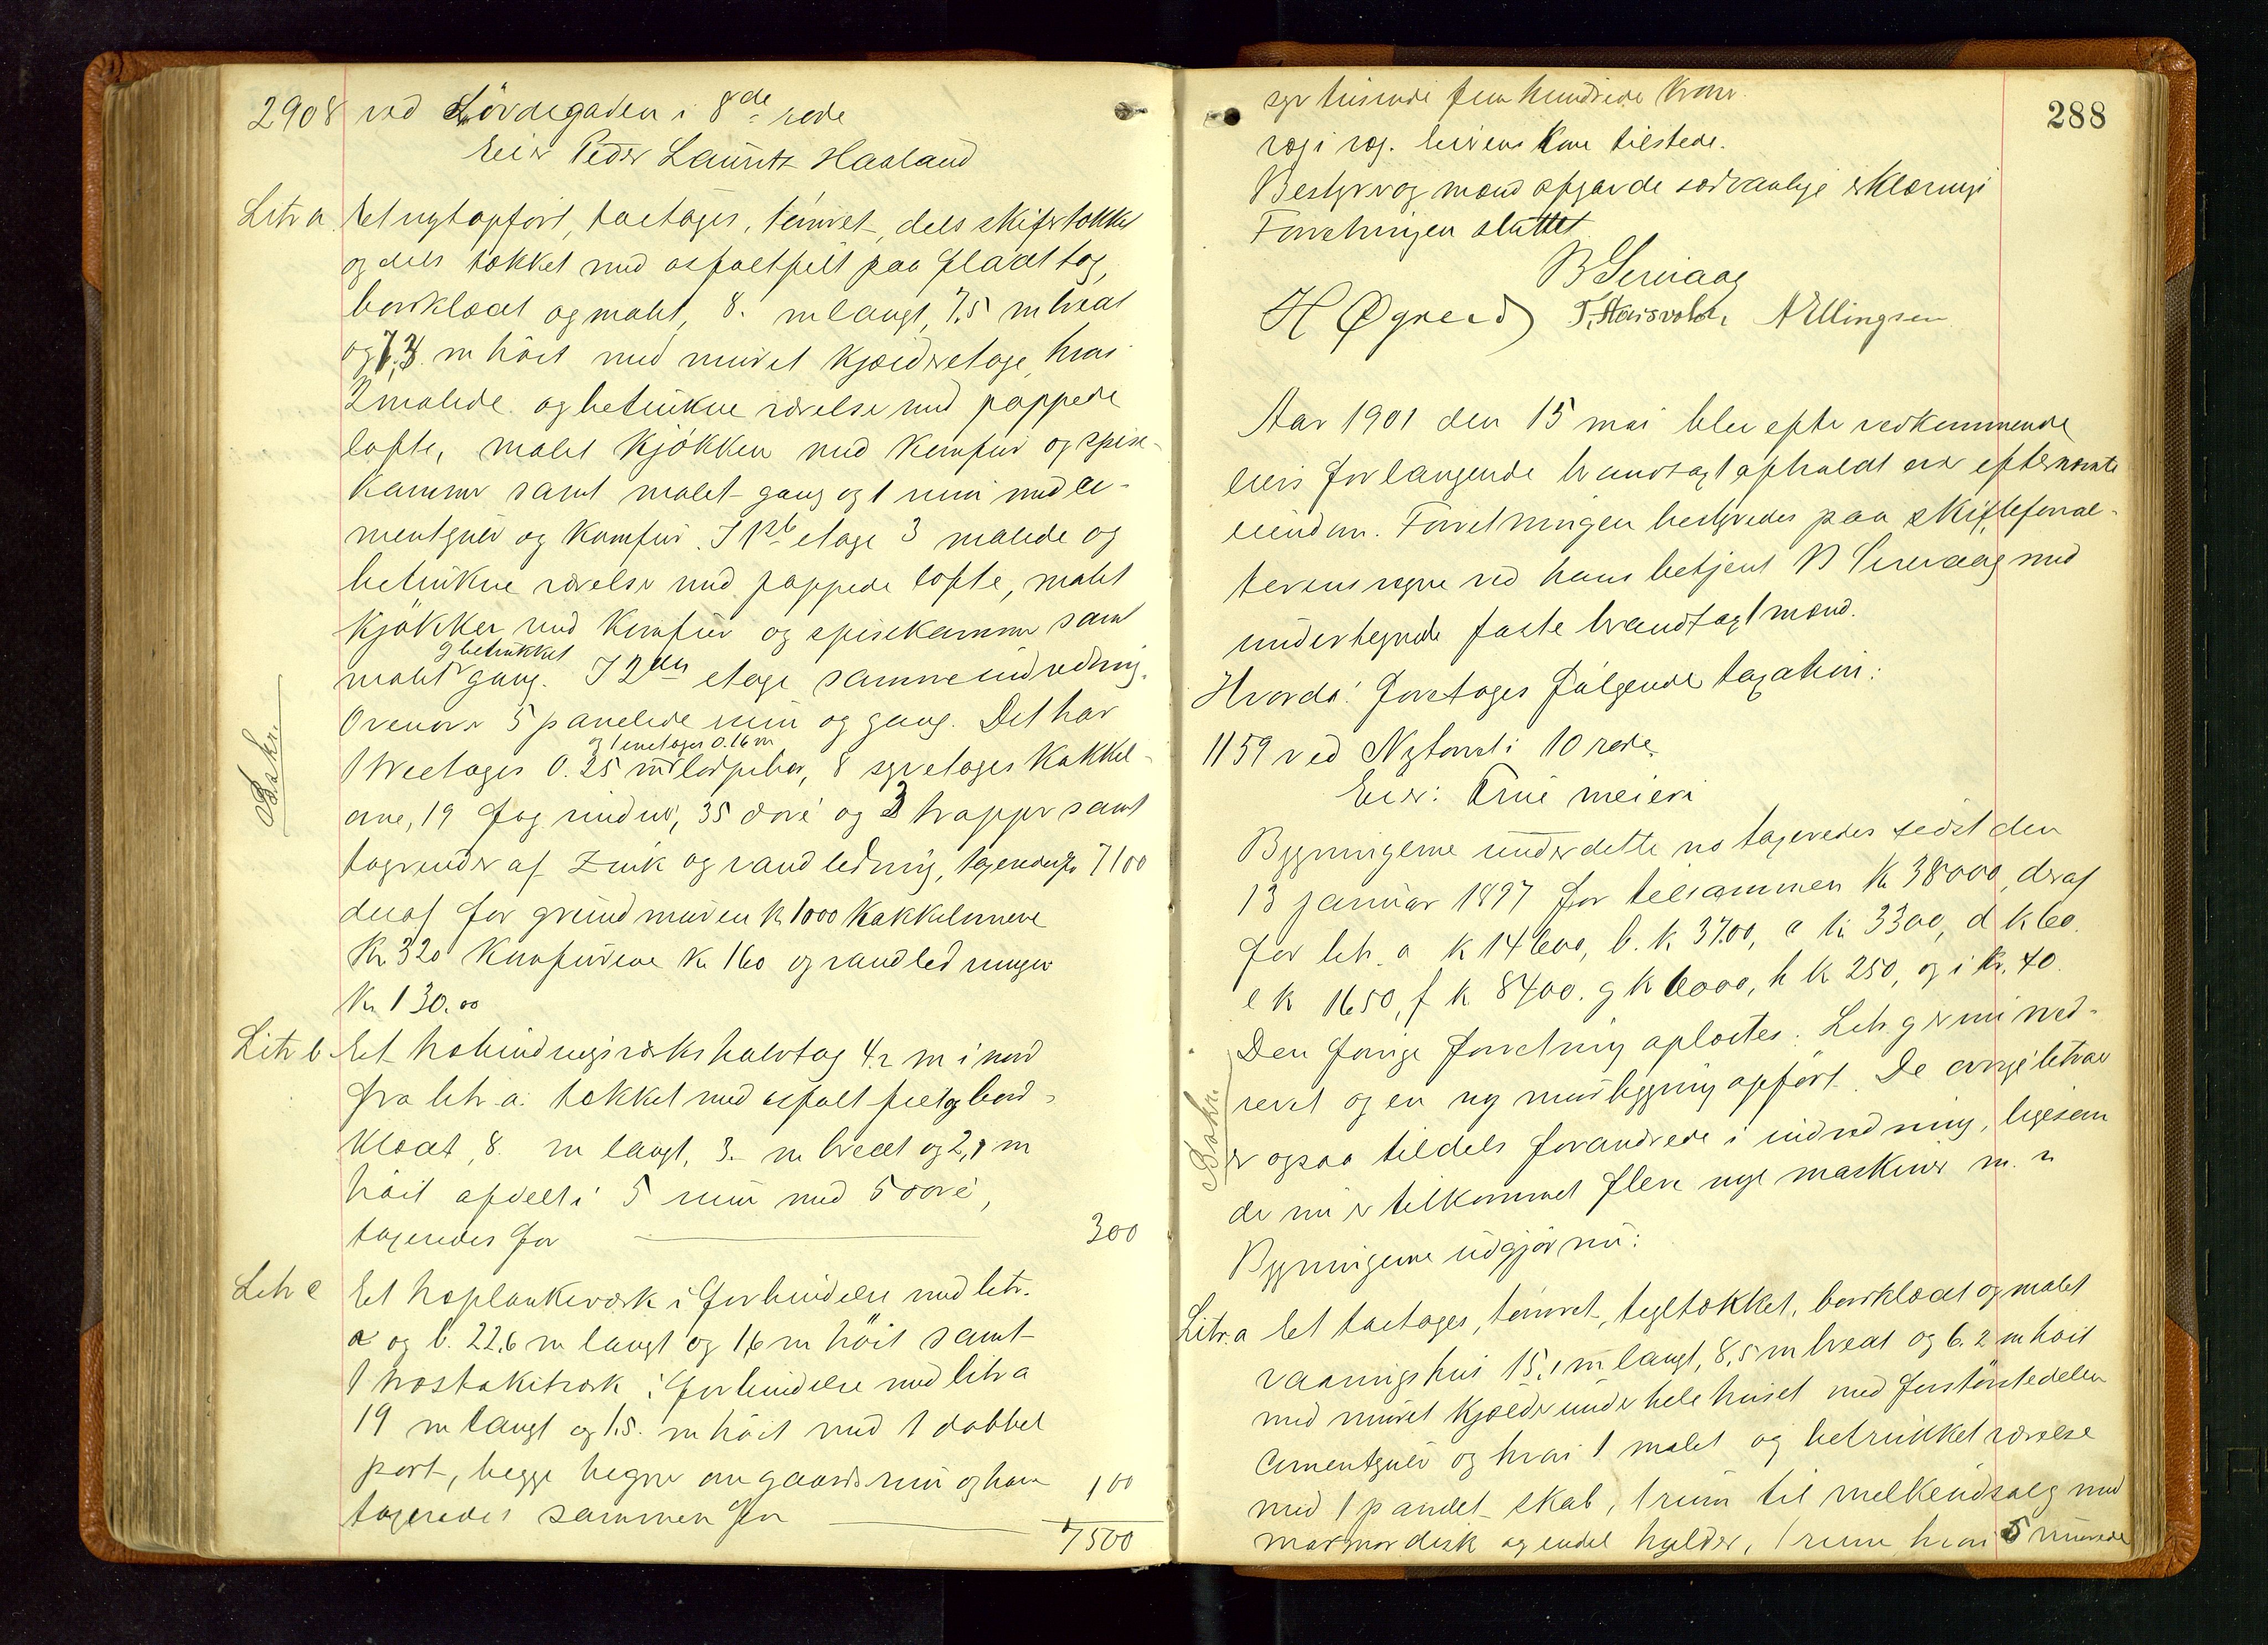 2908 ved Lövdegaden i 8de rode
Eier Peder Lauritz Haaland
Litr a. Et nyt opfört, toetages, tömret, dels skifertækket
og dels tækket med asfaltfilt paa fladt tag,
bordklædt og malet, 8. m langt, 7,5 m bredt
og 7,3 m höit med muret kjælderetage, hvori
2 malede og betrukne værelser med pappede
lofte, malet kjökken med komfur og spise-
kammer samt malet gang og 1 rum med ce-
mentgulv og komfur. I 1ste etage 3 malede og
betrukne værelser med pappede lofte, malet
kjökken med komfur og spisekammer samt
og betrukket
malet gang. I 2den etage samme indredning.
Ovenover 5 panelede rum og gang. Det har
og 1 enetages 0.16 m
1 treetages 0.25 m lös piber, 8 syretages kakkel-
ovne, 19 fag vinduer, 35 döre og 3 trapper samt
tagrender af Zink og vandledning, taxeredes for 7100
deraf for grundmuren kr 1000 kakkelovnene
Kr 320 komfurene Kr 160 og vandledninger
Kr 130.00
Litr b. Et træbindingsværks halvtag 4.2 m i nord
fra litr a. tækket med asfaltfilt og bord-
klædt, 8. m langt, 3. m bredt og 2,1 m
höit afdelt i 5 rum med 5 döre,
taxeredes for 300
Litr c Et træplankeværk i forbindelse med litr.
a og b. 22,6 m langt og 1,6 m höit samt
1 træstakitværk i forbindelse med litr a
19 m langt og 1.5. m höit med 1 dobbel
port, begge hegner om gaardsrum og have
taxeredes sammen for 100
7500
Bakr.
288
syv tusende fem hundrede kroner
Eierens kone tilstede.
Bestyrer og mænd afgav de sædvanlige erklæringer
Forretningen sluttet
B Servaag
H Øgreid T. Hoisvold, A Ellingsen
Aar 1901 den 15 mai blev efter vedkommende
eiers forlangende brandtaxt afholdt over efternævnte
eiendom. Forretningen bestyredes paa skifteforval-
terens vegne ved hans betjent B Servaag med
undertegnede faste brandtaxtmænd.
Hvorda! foretoges fölgende taxation:
1159 ved Nytorvet i 10 rode
Eier: True meieri
Bygningerne under dette no taxeredes sidst den
13 januar 1897 for tilsammen Kr 38000, deraf
for litr. a kr 14600, b. kr 3700, c kr 3300, d kr 60.
e kr 1650, f kr 8400. g kr 6000, h kr 250, og i kr. 40.
Den forrige forretning oplæstes. Litr. g er nu ned-
revet og en ny mur bygning opfört. De övrige litraer
er ogsaa tildels forandrede i indredning, ligesom
der nu er tilkommet flere nye maskiner m. v
Bygningerne udgjör nu:
Bakr.
Litr. a Et toetages, tömret, tegltækket, bordklædt og malet
vaaningshus 15,1 m langt, 8,5 m bredt og 6.2 m höit
med muret kjælder under hele huset med for störstedelen
cementgulv og hvori 1 malet og betrukket værelse
med 1 panelet skab, 1 rum til melkeudsalg med
marmordisk og endel hylder, 1 rum hvori 5 murede